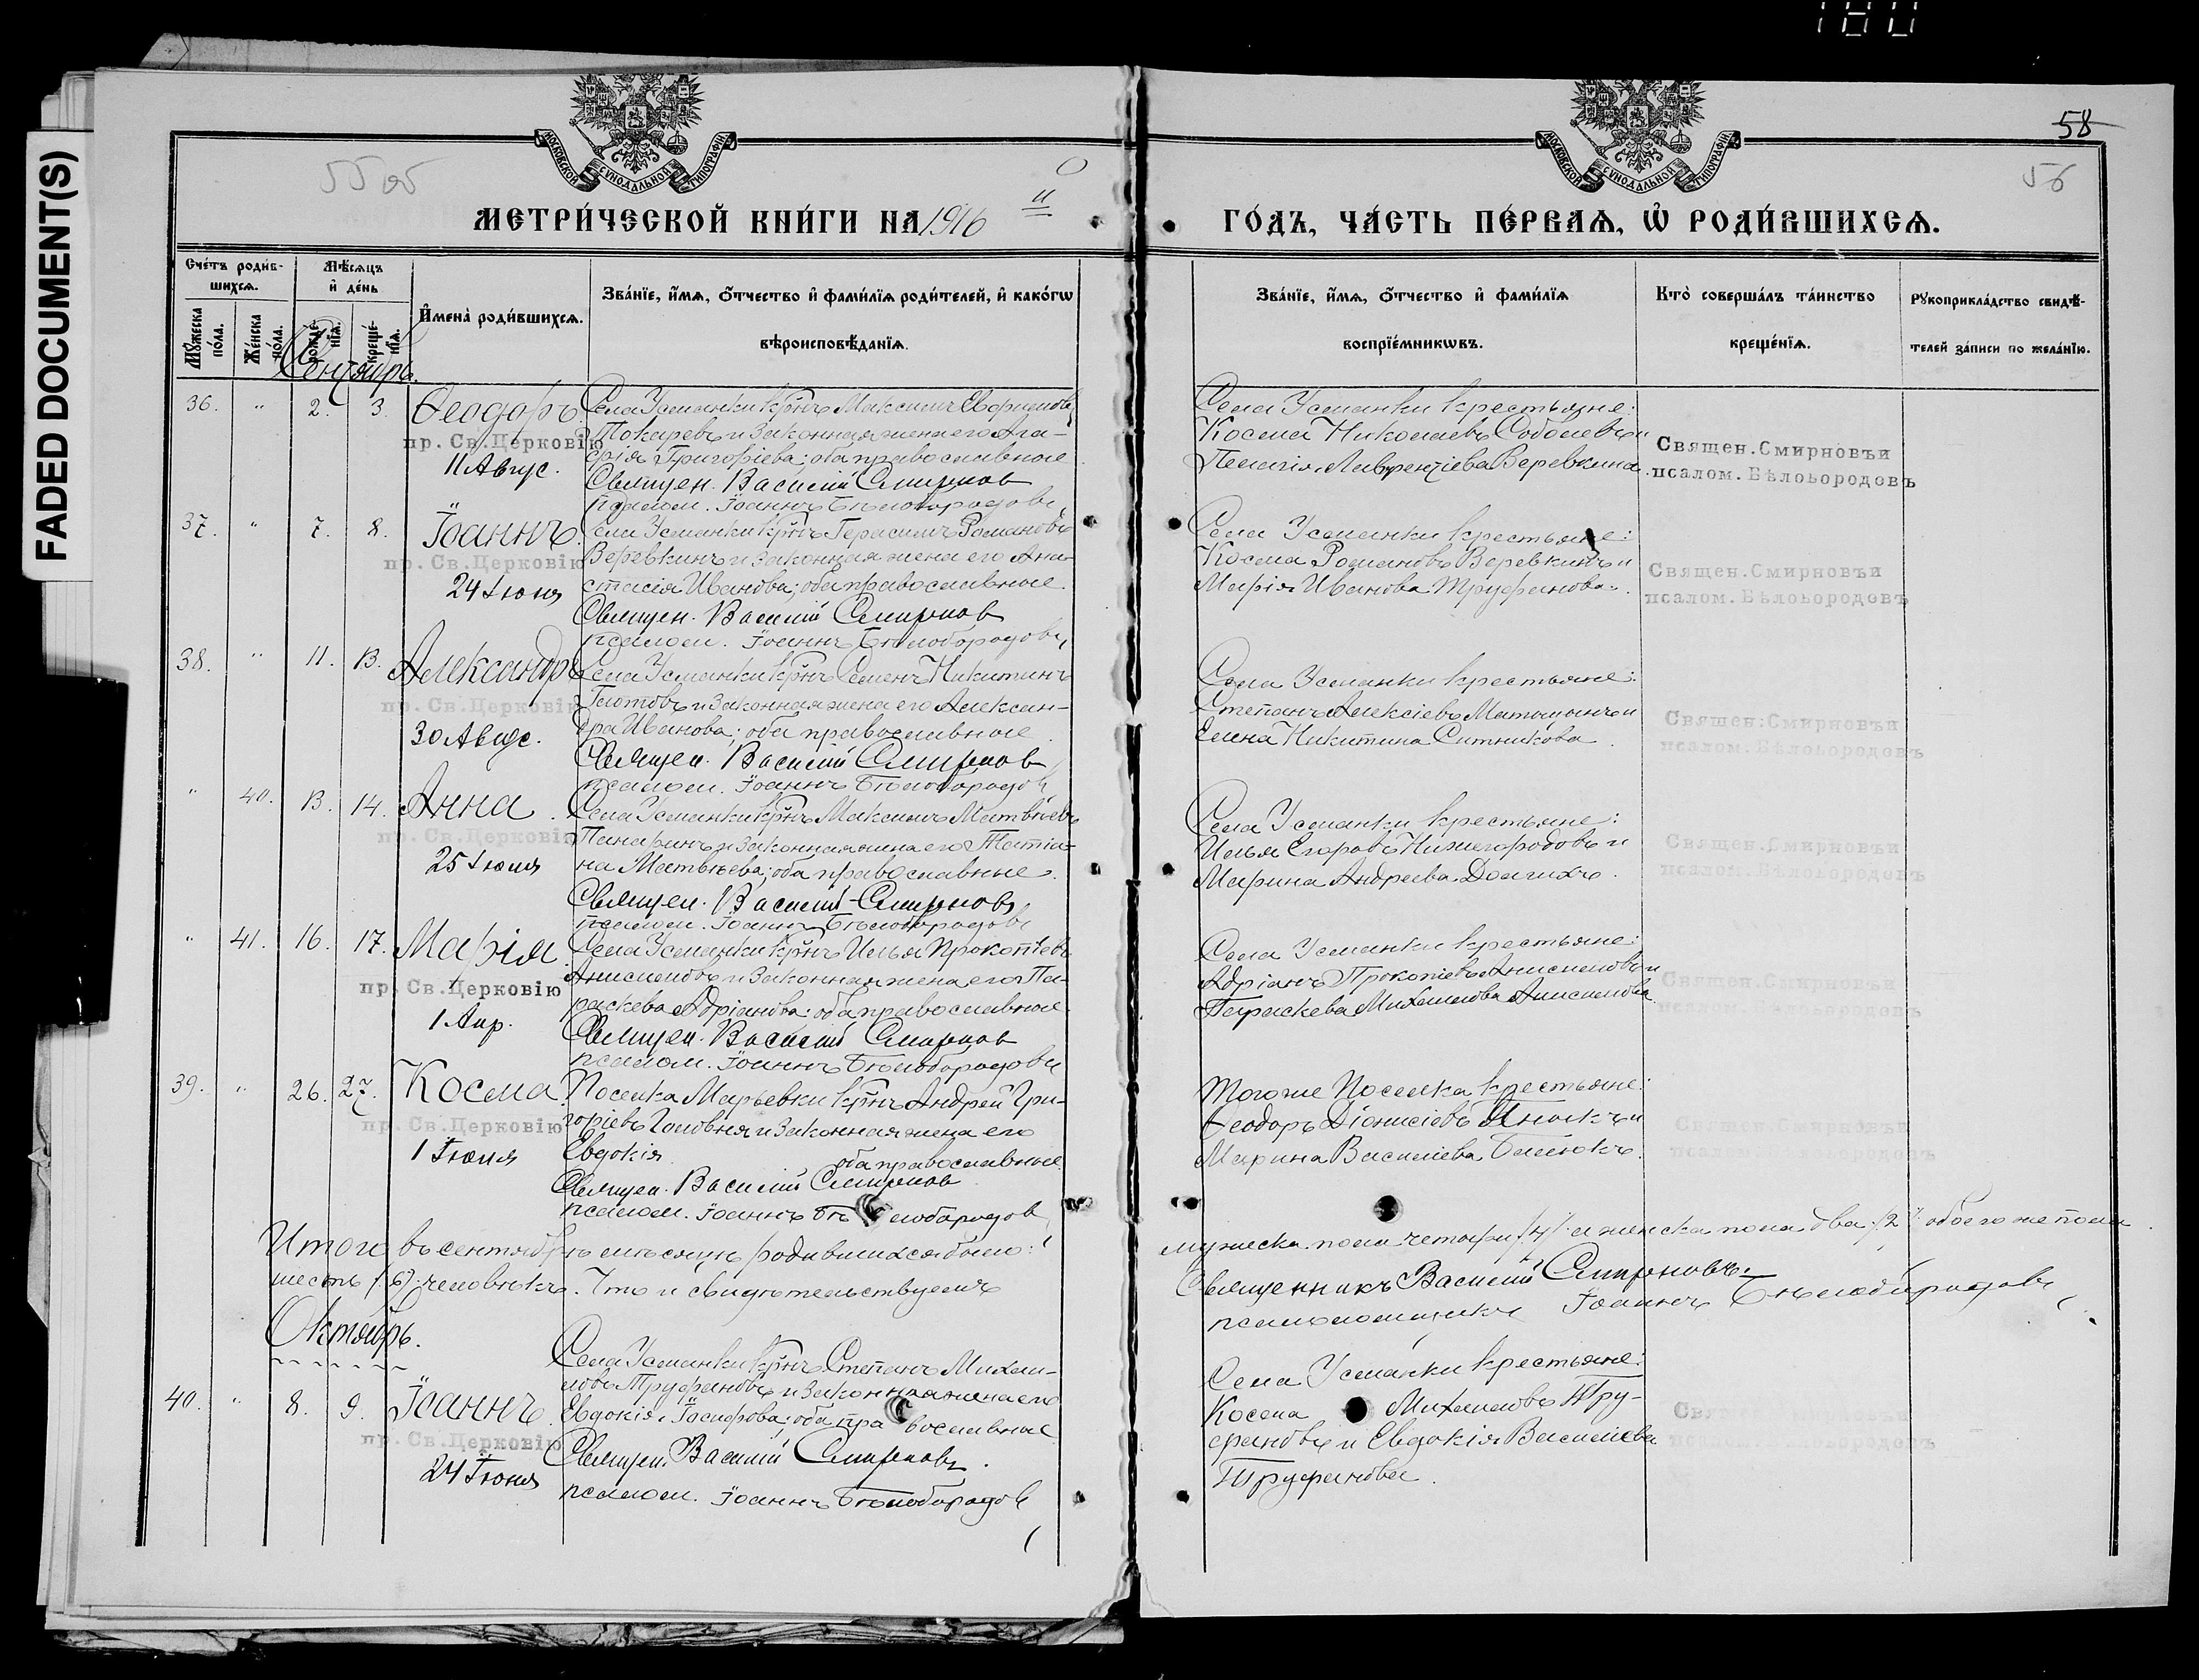 180
FADED DOCUMENT(S)
МОСКОВСКОЙ СѴНОДАЛЬНОЙ ТИПОГРАФІИ
МОСКОВСКОЙ СѴНОДАЛЬНОЙ ТИПОГРАФІИ
58
55 об
56
МЕТРИ́ЧЕСКОЙ КНИ́ГИ НА 1916
ГО́ДЪ, ЧА́СТЬ ПЕ́РВАѦ, Ѡ҆ РОДИ́ВШИХСѦ.
Сче́тъ роди́в-
шихсѧ.
Мꙋ́жеска по́ла.
Же́нска по́ла.
Мѣ́сѧцъ
и҆ де́нь
рожде́-нїѧ.
креще́-нїѧ.
И҆мена̀ роди́вшихсѧ.
Зва́нїе, и҆́мѧ, ѻ҆́тчество и҆ фами́лїѧ роди́телей, и҆ како́гѡ
вѣроисповѣ́данїѧ.
Зва́нїе, и҆́мѧ, ѻ҆́тчество и҆ фами́лїѧ
воспрїе́мникѡвъ.
Кто̀ соверша́лъ та́инство
креще́нїѧ.
Рꙋкоприкла́дство свидѣ́-
телей за́писи по жела́нїю.
Сентябрь.
36. " 2. 3. Ѳеодоръ
пр. Св.Церковію
11 Авгус.
Села Усманки кр̃нъ Максимъ Евфимовъ
Токаревъ и законная жена его Ага-
фія Григоріева; оба православные
Священ. Василий Смирнов
псалом. Іоаннъ Бѣлобородовъ
Села Усманки крестьяне:
Косма Николаевъ Соболевъ и
Пелагія Лаврентіева Веревкина.
Священ.Смирновъи
псалом.Бѣлоьородовъ
37. " 7. 8. Іоаннъ.
пр. Св.Церковію
24 Іюня
Села Усманки кр̃нъ Герасимъ Романовъ
Веревкинъ и законная жена его Ана-
стасія Иванова; оба православные.
Священ. Василий Смирнов
псалом. Іоаннъ Бѣлобородовъ
Села Усманки крестьяне:
Косма Романовъ Веревкинъ и
Марія Иванова Труфанова.
Священ.Смирновъи
псалом.Бѣлоьородовъ
38. " 11. 13. Александръ
пр. Св.Церковію
30 Авгус.
Села Усманки кр̃нъ Семенъ Никитинъ
и законная жена его Алексан-
дра Иванова; оба православные.
Священ. Василий Смирнов
псалом. Іоаннъ Бѣлобородовъ
Села Усманки крестьяне:
Степанъ Алексіевъ и
Елена Никитина Ситникова.
Священ:Смирновъи
псалом.Бѣлоьородовъ
" 40. 13. 14. Анна.
пр. Св.Церковію
25 Іюля
Села Усманки кр̃нъ Максимъ Матвѣевъ
Панаринъ и законная жена его Татіа-
на Матвѣева; оба православные.
Священ. Василий Смирновъ
псалом. Іоаннъ Бѣлобородовъ
Села Усманки крестьяне:
Илья Егоровъ Нижегородовъ и
Марина Андреева Долгихъ.
Священ.Смирновъи
псалом.Бѣлоьородовъ
" 41. 16. 17. Марія
пр. Св.Церковію
1 Апр.
Села Усманки кр̃нъ Илья Прокопіевъ
Анисимовъ и законная жена его Па-
раскева Адріанова; оба православные.
Священ. Василий Смирнов
псалом. Іоаннъ Бѣлобородовъ
Села Усманки крестьяне:
Адріанъ Прокопіевъ Анисимовъ и
Параскева Михаилова Анисимова.
Священ.Смирновъи
псалом.Бѣлоьородовъ
39. " 26. 27. Косма.
пр. Св.Церковію
1 Іюля
Поселка Марьевки кр̃нъ Андрей Гри-
горіевъ Головня и законная жена его
Евдокія оба православные.
Священ. Василий Смирнов
псалом. Іоаннъ Бѣлобородов
Того же поселка крестьяне:
Ѳеодоръ Діонисіевъ и
Марина Василіева
Священ.Смирновъи
псалом.Бѣлоьородовъ
Итого въ сентябрѣ мѣсяцѣ родившихся было:
мужеска пола четыри /4/ и женска пола два /2/ обоего же пола
шесть /6/ человѣкъ. Что и свидѣтельствуемъ
Священникъ Василий Смирновъ.
псаломщикъ Іоаннъ Бѣлобородовъ
Октябрь.
40. " 8. 9. Іоаннъ.
пр. Св.Церковію
24 Іюня
Села Усманки кр̃нъ Степанъ Михаи-
ловъ Труфановъ и законная жена его
Евдокія Іосифова; оба православные
Священ. Василий Смирновъ.
псалом. Іоаннъ Бѣлобородов
Села Усманки крестьяне:
Косма Михаиловъ Тру-
фановъ и Евдокія Василіева
Труфанова.
Священ.Смирновъи
псалом.Бѣлоьородовъ